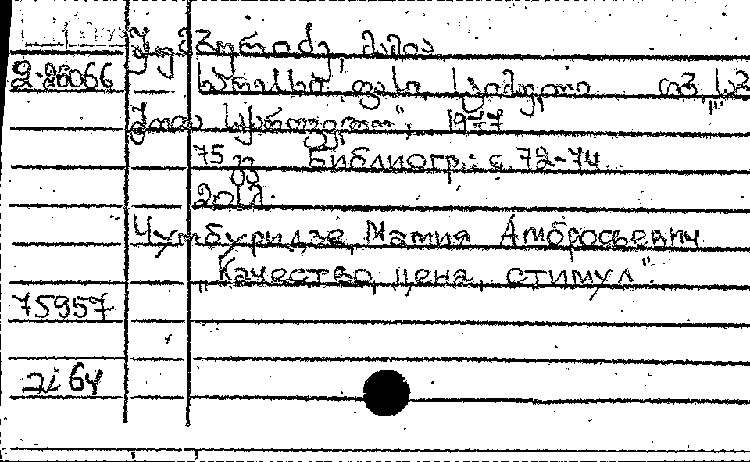 ჭუმბურიძე, მამია
2-26066 ხარისხი, ფასი, სტიმული თბ. „საბ
ჭოთა საქართველო", 1977
75 გვ Библиогр.: с. 72-74
Чумбуридзе, Мамия Амбросьевич
„Качество, цена, стимул".
75957
2i 64